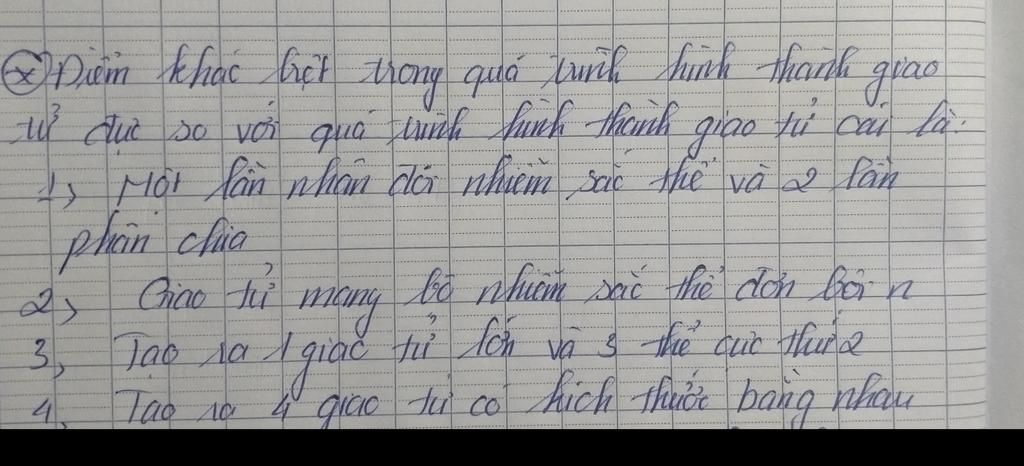 * Điểm khác biệt trong quá trình hình thành giao
tử đực so với quá trình hình thành giao tử cái là:
1, Một lần nhân đôi nhiễm sắc thể và 2 lần
phân chia
2, Giao tử mang bộ nhiễm sắc thể đơn bội n
3, Tạo ra 1 giao tử lớn và 3 thể cực thứ 2
4, Tạo ra 4 giao tử có kích thước bằng nhau